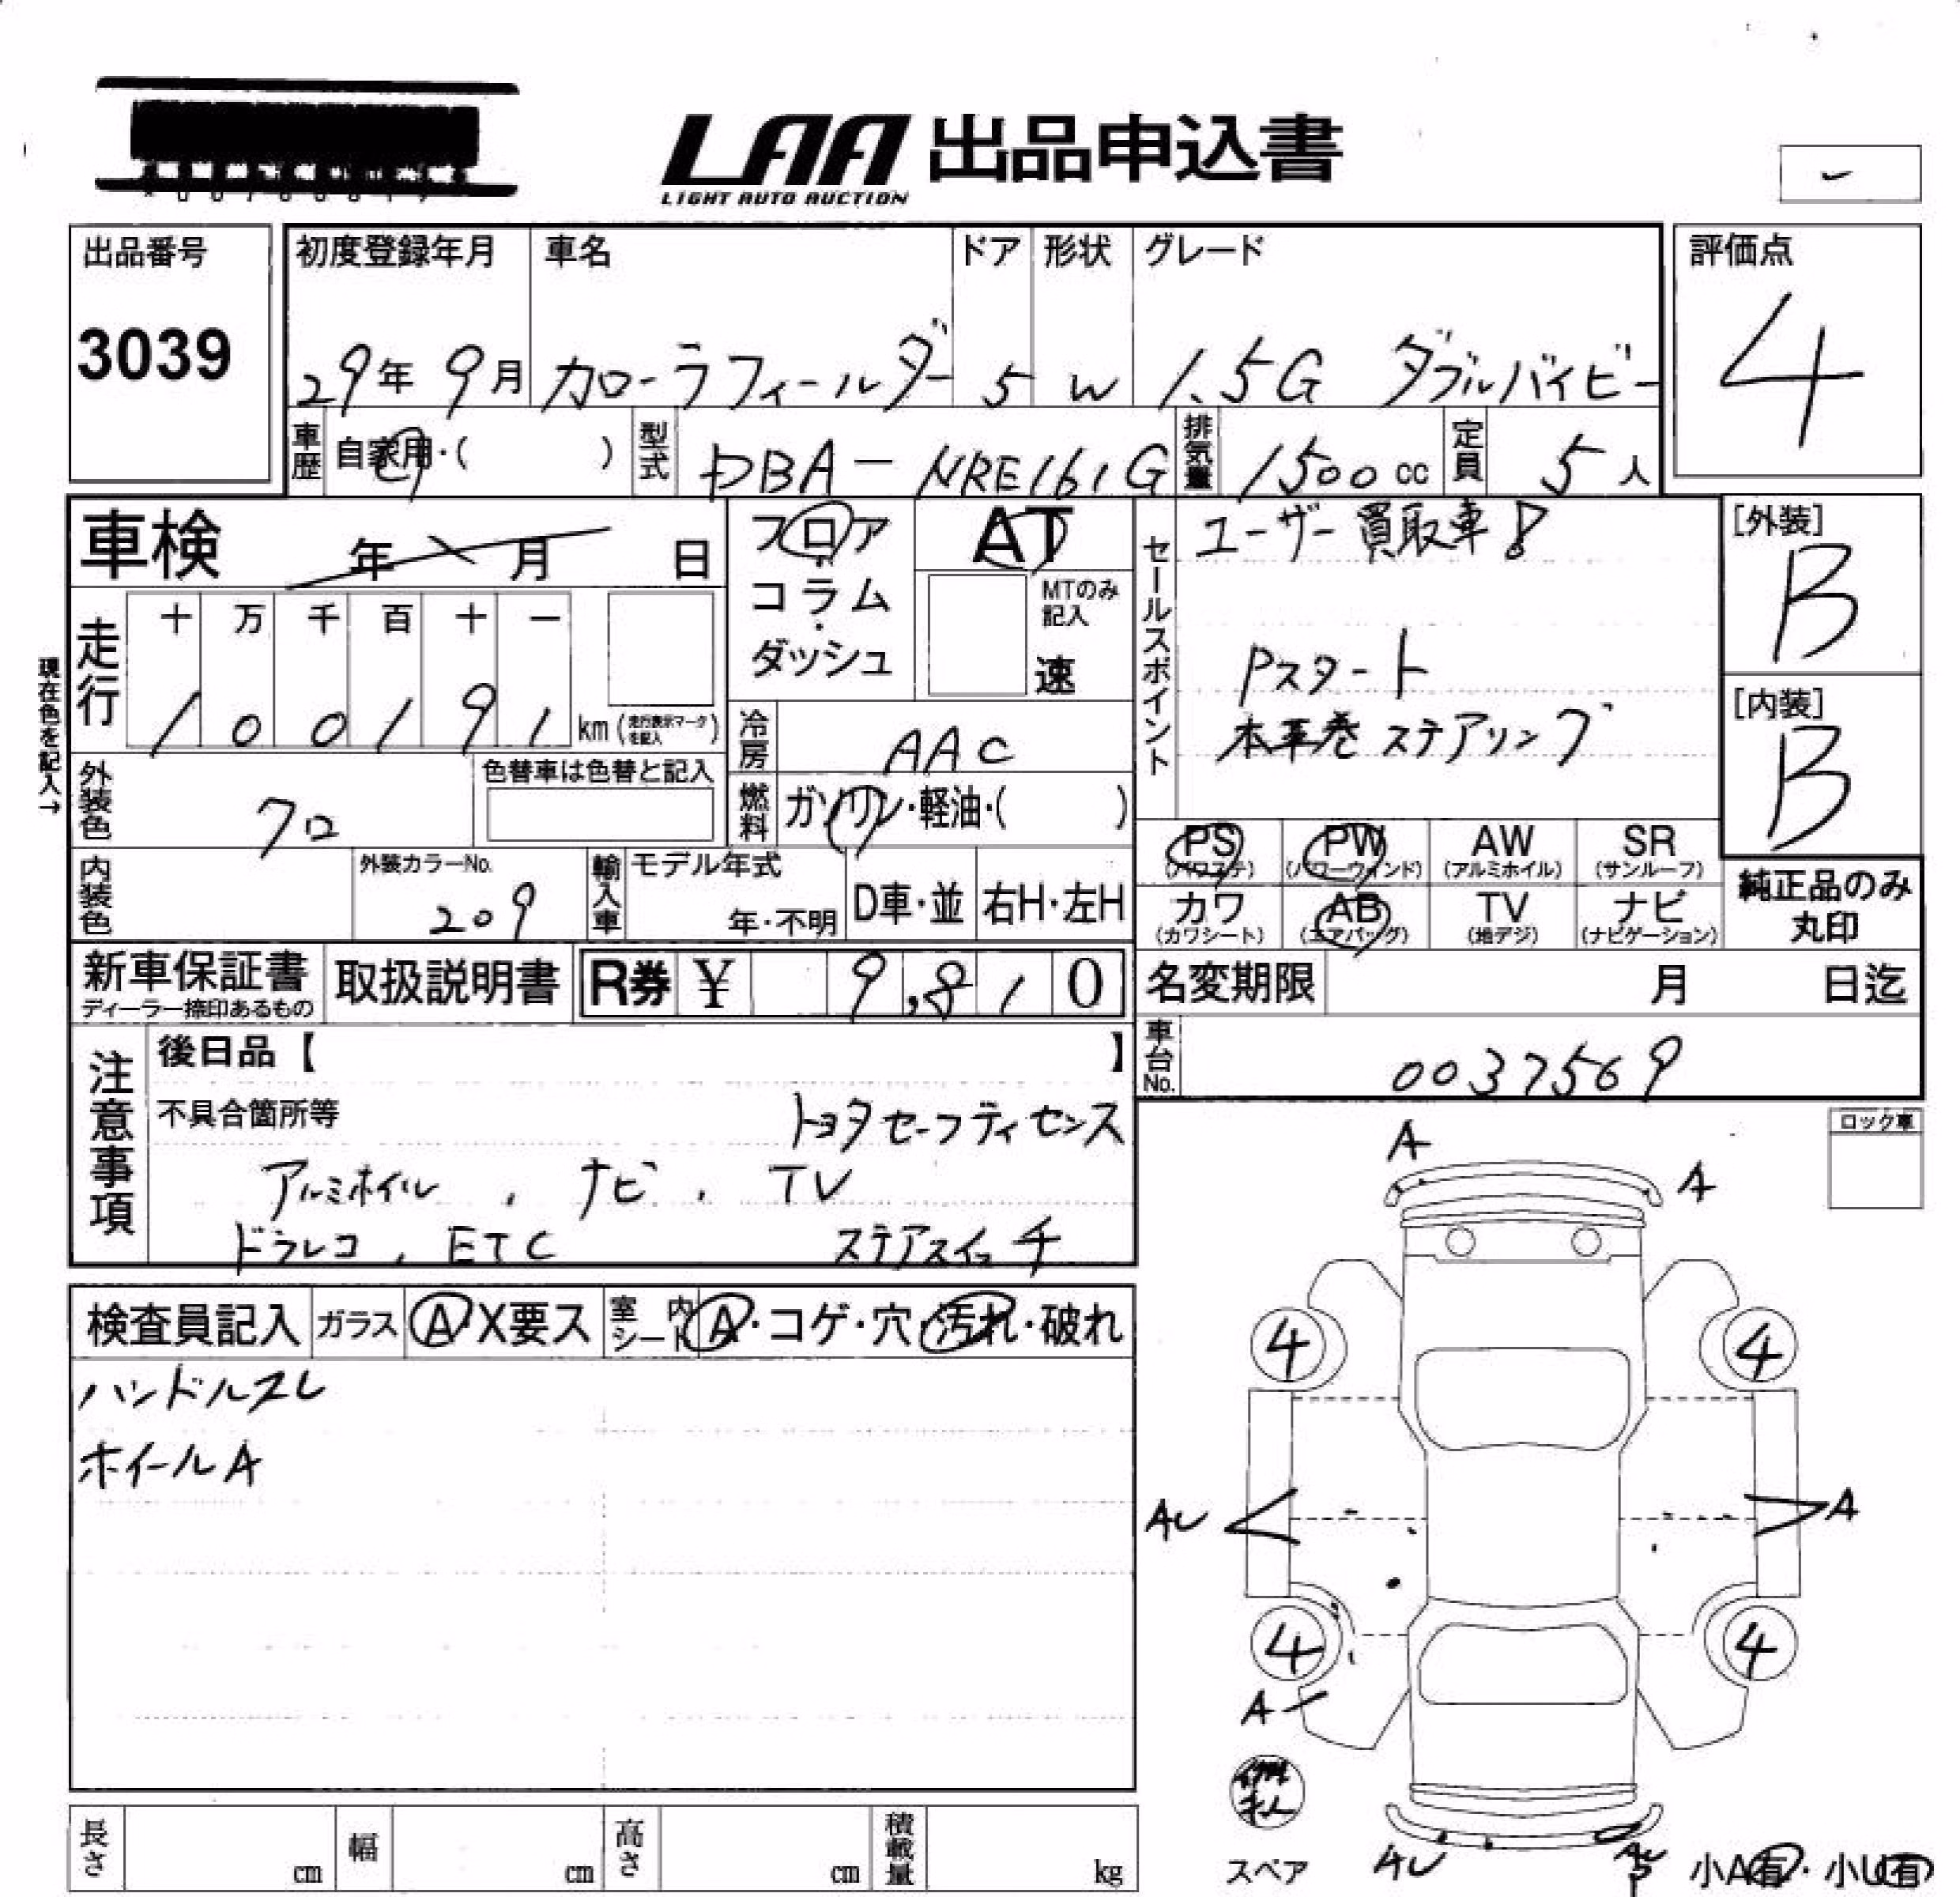 LAA 出品申込書
LIGHT AUTO AUCTION
出品番号 初度登録年月 車名 ドア 形状 グレード 評価点
3039 29年 9月 カローラフィールダー 5 W 1.5G ダブルバイビー 4
車歴 自家用・( ) 型式 DBA-NRE161G 排気量 1500cc 定員 5人
車検 年 月 日 フロア AT ユーザー買取車! [外装]
コラム・ MTのみ記入 セールスポイント B
走行 十 万 千 百 十 一
ダッシュ 速 Pスタート [内装]
1 0 0 1 9 1 km (走行表示マークを記入) 冷房 AAC 本革巻ステアリング B
現在色を記入→
外装色 クロ 色替車は色替と記入 燃料 ガソリン・軽油・( )
PS PW AW SR
(パワステ) (パワーウィンド) (アルミホイル) (サンルーフ)
内装色 外装カラーNo. 209 輸入車 モデル年式 年・不明 D車・並 右H・左H
カワ AB TV ナビ 純正品のみ
(カワシート) (エアバッグ) (地デジ) (ナビゲーション) 丸印
新車保証書 取扱説明書 R券 ¥ 9,810 名変期限 月 日迄
ディーラー捺印あるもの
注意事項 後日品【 】 車台No. 0037569
不具合箇所等 トヨタセーフティセンス ロック車
アルミホイル, ナビ, TV
ドラレコ, ETC ステアスイッチ
A
A
検査員記入 ガラス A・X要ス 室内シート A・コゲ・穴・汚れ・破れ
4 4
ハンドルスレ
ホイールA
AU A
4 4
A
スペア AU AU 小A有・小U有
長さ cm 幅 cm 高さ cm 積載量 kg